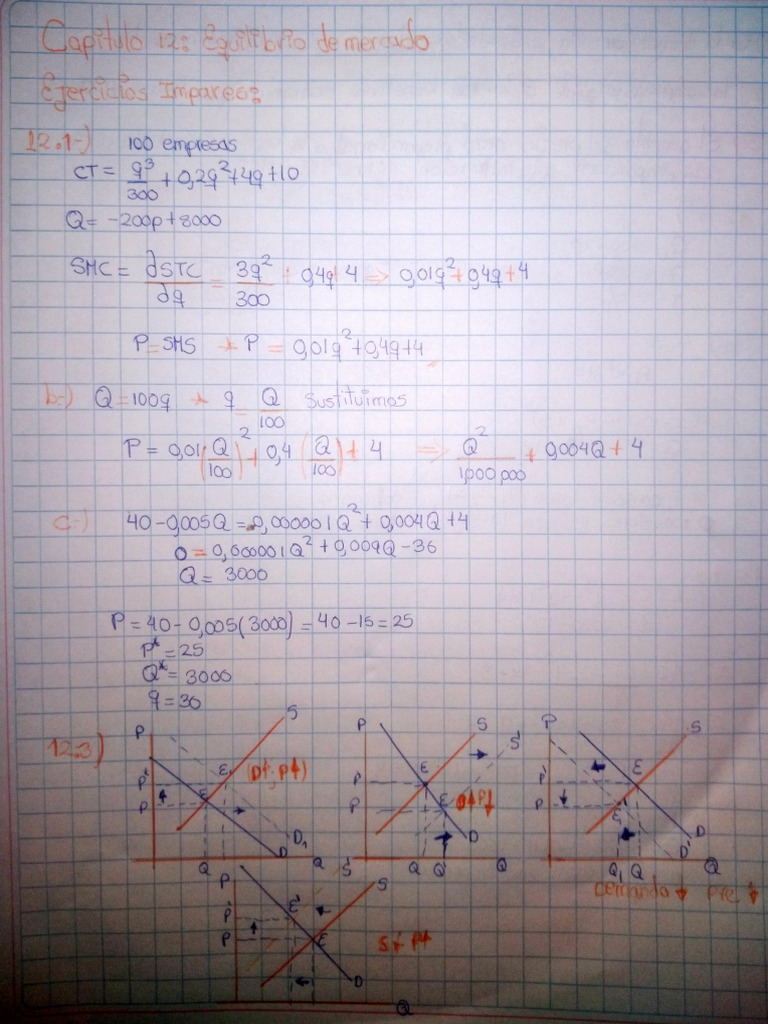 Capitulo 12: Equilibrio de mercado
Ejercicios Impares:
12.1-) 100 empresas
CT = q³/300 + 0,2q² + 4q + 10
Q = -200p + 8000
SMC = ∂STC/∂q = 3q²/300 + 0,4q + 4 => 0,01q² + 0,4q + 4
P = SMS → P = 0,01q² + 0,4q + 4
b-) Q = 100q → q = Q/100 Sustituimos
P = 0,01(Q/100)² + 0,4(Q/100) + 4 => Q²/1,000,000 + 0,004Q + 4
c-) 40 - 0,005Q = 0,000001Q² + 0,004Q + 4
0 = 0,000001Q² + 0,009Q - 36
Q = 3000
P = 40 - 0,005(3000) = 40 - 15 = 25
P* = 25
Q* = 3000
q = 30
12.3)
P S E₁ (D↑; P↑) P' E P D₁ D Q Q
P S S' E P P E D↓P↓ D S' Q Q' Q
P S E P' P E₁ D D' Q₁ Q Q
Demanda ↓ Pre. ↓
P S P' E' P E S↓ P↑ D Q